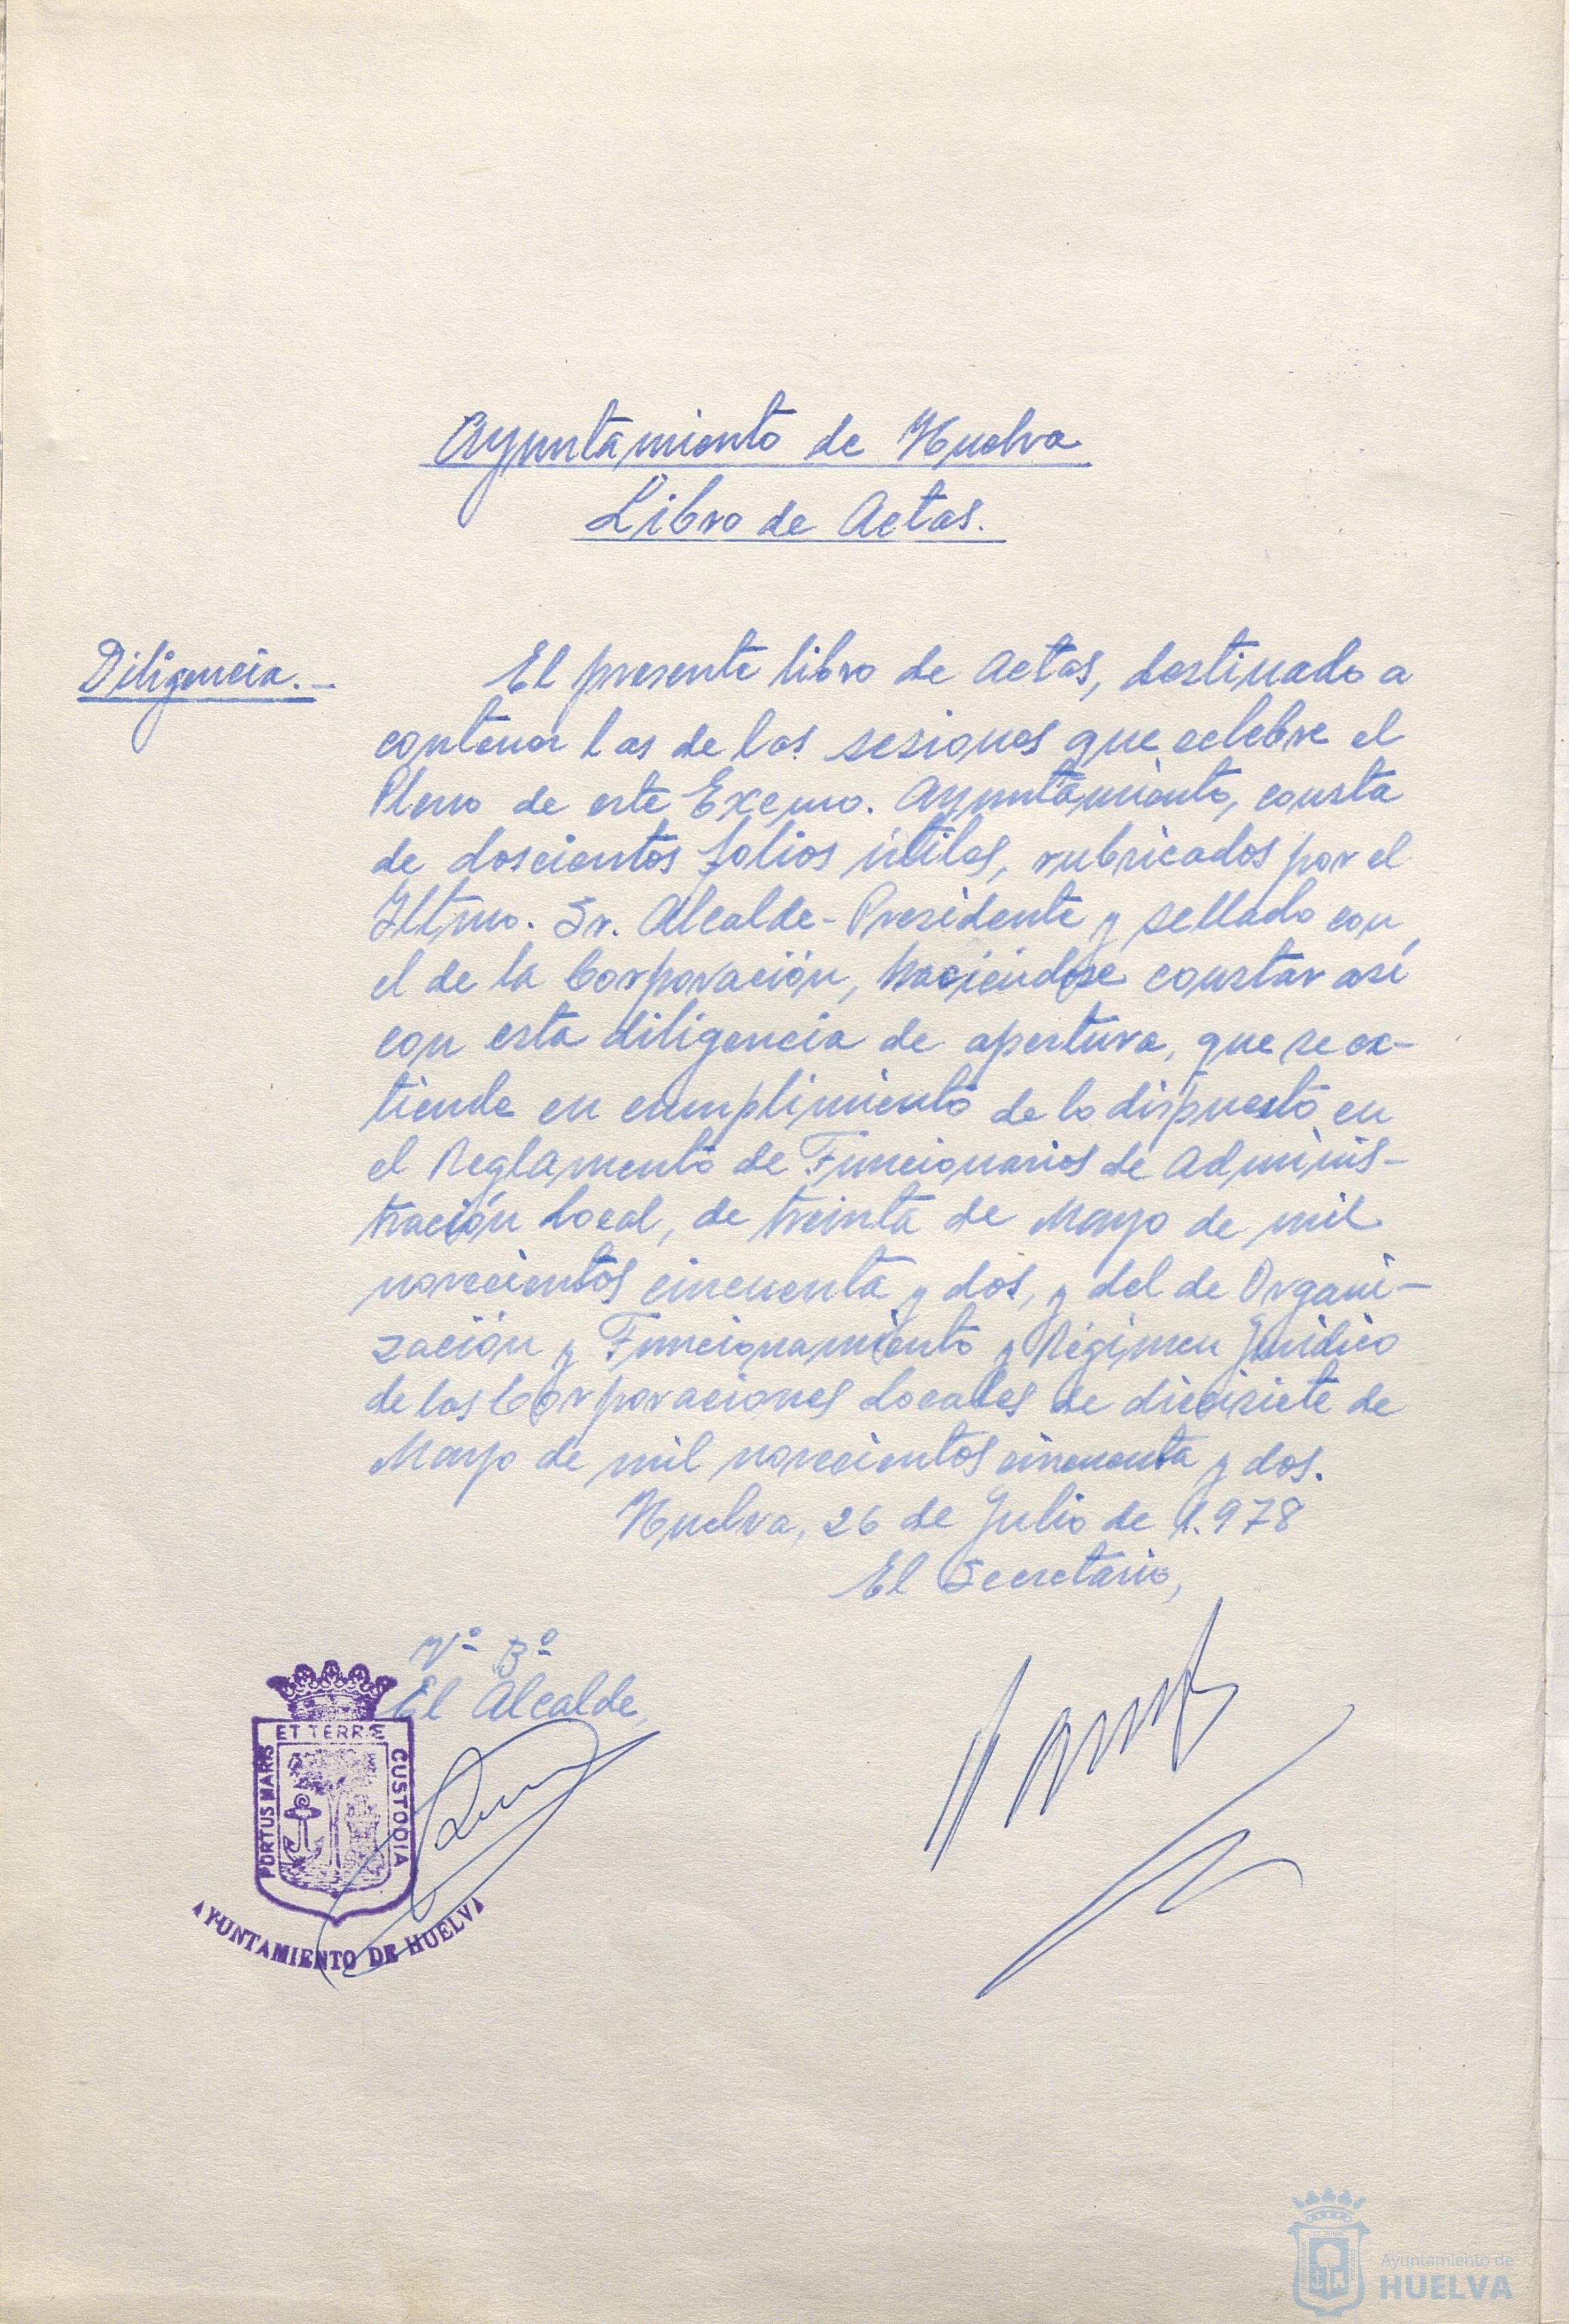 Ayuntamiento de Huelva
Libro de Actas.
Diligencia.- El presente libro de Actas, destinado a
contener las de las sesiones que celebre el
Pleno de este Excmo. Ayuntamiento, consta
de doscientos folios útiles, rubricados por el
Iltmo. Sr. Alcalde-Presidente y sellado con
el de la Corporación, haciéndose constar así
con esta diligencia de apertura, que se ex-
tiende en cumplimiento de lo dispuesto en
el Reglamento de Funcionarios de Adminis-
tración Local, de treinta de Mayo de mil
novecientos cincuenta y dos, y del de Organi-
zación y Funcionamiento y Régimen Jurídico
de las Corporaciones Locales de diecisiete de
Mayo de mil novecientos cincuenta y dos.
Huelva, 26 de Julio de 1.978
El Secretario,
Vº Bº
El Alcalde,
PORTUS MARIS ET TERRÆ CUSTODIA
AYUNTAMIENTO DE HUELVA
Ayuntamiento de
HUELVA